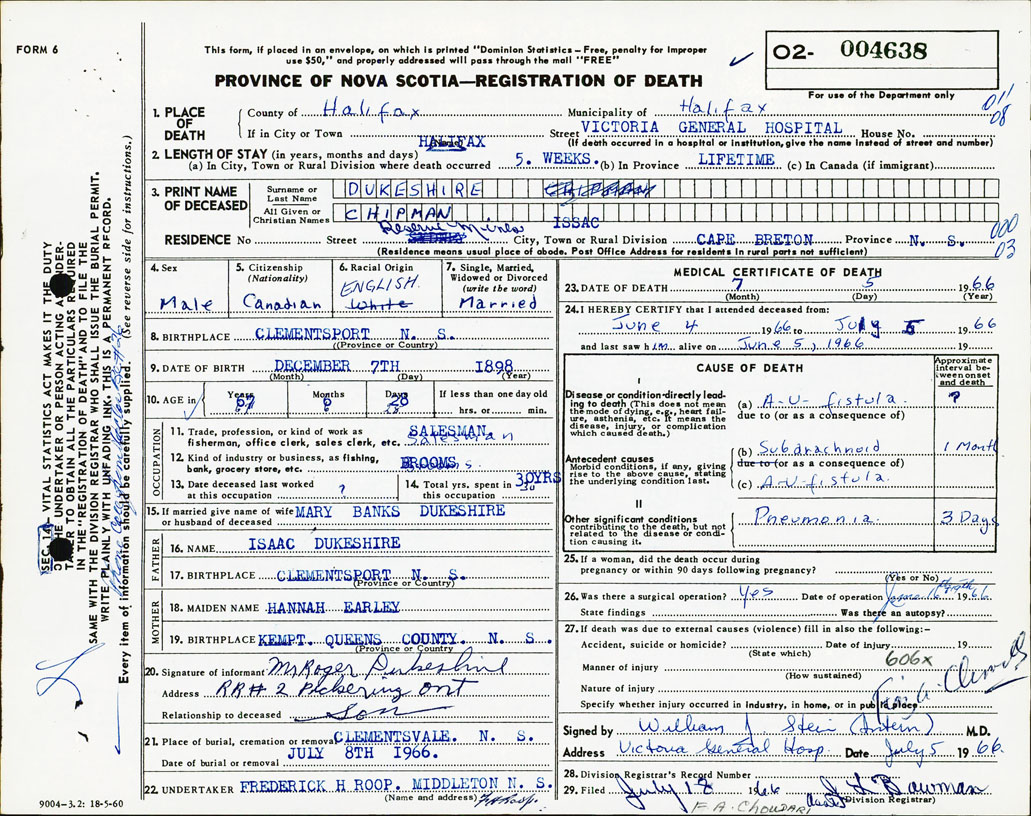 FORM 6
This form, if placed in an envelope, on which is printed "Dominion Statistics – Free, penalty for improper
use $50," and properly addressed will pass through the mail "FREE"
02- 004638
For use of the Department only
PROVINCE OF NOVA SCOTIA—REGISTRATION OF DEATH
1. PLACE OF DEATH
County of Halifax Municipality of Halifax
011
08
If in City or Town HALIFAX Street VICTORIA GENERAL HOSPITAL House No.
(If death occurred in a hospital or institution, give the name instead of street and number)
2. LENGTH OF STAY (in years, months and days)
(a) In City, Town or Rural Division where death occurred 5. WEEKS. (b) In Province LIFETIME (c) In Canada (if immigrant)
3. PRINT NAME OF DECEASED
Surname or Last Name DUKESHIRE CHIPMAN
All Given or Christian Names CHIPMAN ISSAC
RESIDENCE No Street Reserve Mines City, Town or Rural Division CAPE BRETON Province N. S.
000
03
(Residence means usual place of abode. Post Office Address for residents in rural parts not sufficient)
4. Sex Male
5. Citizenship (Nationality) Canadian
6. Racial Origin ENGLISH White
7. Single, Married, Widowed or Divorced (write the word) Married
8. BIRTHPLACE CLEMENTSPORT N. S.
(Province or Country)
9. DATE OF BIRTH DECEMBER 7TH 1898
(Month) (Day) (Year)
10. AGE in Years 67 Months 6 Days 28 If less than one day old
hrs. or min.
OCCUPATION
11. Trade, profession, or kind of work as SALESMAN
fisherman, office clerk, sales clerk, etc. Salesman
12. Kind of industry or business, as fishing,
bank, grocery store, etc. BROOMS
13. Date deceased last worked at this occupation ?
14. Total yrs. spent in this occupation 30YRS 30
15. If married give name of wife or husband of deceased MARY BANKS DUKESHIRE
FATHER
16. NAME ISAAC DUKESHIRE
17. BIRTHPLACE CLEMENTSPORT N. S.
(Province or Country)
MOTHER
18. MAIDEN NAME HANNAH EARLEY
19. BIRTHPLACE KEMPT. QUEENS COUNTY. N. S.
(Province or Country)
20. Signature of informant Mr Roger Dukeshire
Address RR# 2 Pickering Ont
Relationship to deceased Son
21. Place of burial, cremation or removal CLEMENTSVALE. N. S.
Date of burial or removal JULY 8TH 1966.
22. UNDERTAKER FREDERICK H ROOP. MIDDLETON N. S.
(Name and address)
9004–3.2: 18-5-60
MEDICAL CERTIFICATE OF DEATH
23. DATE OF DEATH 7 5 1966
(Month) (Day) (Year)
24. I HEREBY CERTIFY that I attended deceased from:
June 4 1966 to July 5 1966
and last saw him alive on June 5, 1966 19
CAUSE OF DEATH
Approximate interval between onset and death
I
Disease or condition directly leading to death (This does not mean the mode of dying, e.g., heart failure, asthenia, etc. It means the disease, injury, or complication which caused death.)
(a) A-U- fistula. ?
due to (or as a consequence of)
Antecedent causes
Morbid conditions, if any, giving rise to the above cause, stating the underlying condition last.
(b) Subdrachnoid 1 Month
due to (or as a consequence of)
(c) A-U fistula.
II
Other significant conditions contributing to the death, but not related to the disease or condition causing it.
Pneumonia. 3 Days
25. If a woman, did the death occur during
pregnancy or within 90 days following pregnancy?
(Yes or No)
26. Was there a surgical operation? Yes Date of operation June 16 1966
State findings Was there an autopsy?
27. If death was due to external causes (violence) fill in also the following:–
Accident, suicide or homicide? Date of injury 19
(State which)
606x
Manner of injury
(How sustained)
Nature of injury
Specify whether injury occurred in industry, in home, or in public place
Signed by William J. Stein (Intern) M.D.
Address Victoria General Hosp. Date July 5 1966.
28. Division Registrar's Record Number
29. Filed July 18 1966 J L Bowman
(Division Registrar)
F A. CHOUDARI
SEC. 14) VITAL STATISTICS ACT MAKES IT THE DUTY
OF THE UNDERTAKER OR PERSON ACTING AS UNDER-
TAKER TO OBTAIN ALL THE PARTICULARS REQUIRED
IN THE "REGISTRATION OF DEATH" AND TO FILE THE
SAME WITH THE DIVISION REGISTRAR WHO SHALL ISSUE THE BURIAL PERMIT.
WRITE PLAINLY WITH UNFADING INK. THIS IS A PERMANENT RECORD.
Every item of information should be carefully supplied. (See reverse side for instructions.)